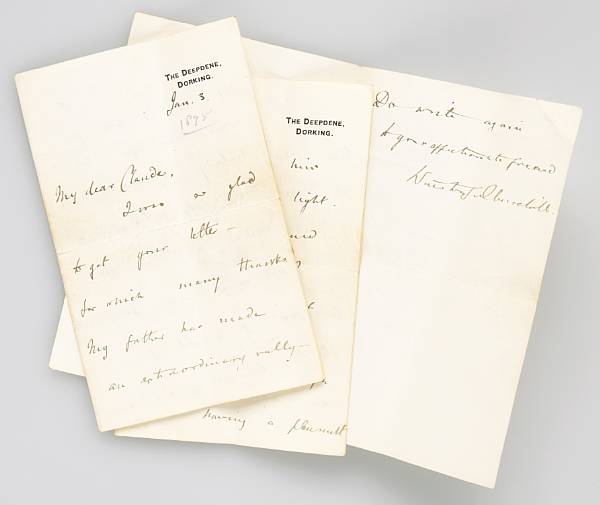 THE DEEPDENE,
DORKING.
Jan. 3.
1895
My dear Claude,
I was so glad
to get your letter –
for which many thanks
My father has made
an extraordinary rally –
THE DEEPDENE,
DORKING.
him
light.
having a
Do write again
to your affectionate friend
Winston S. Churchill.